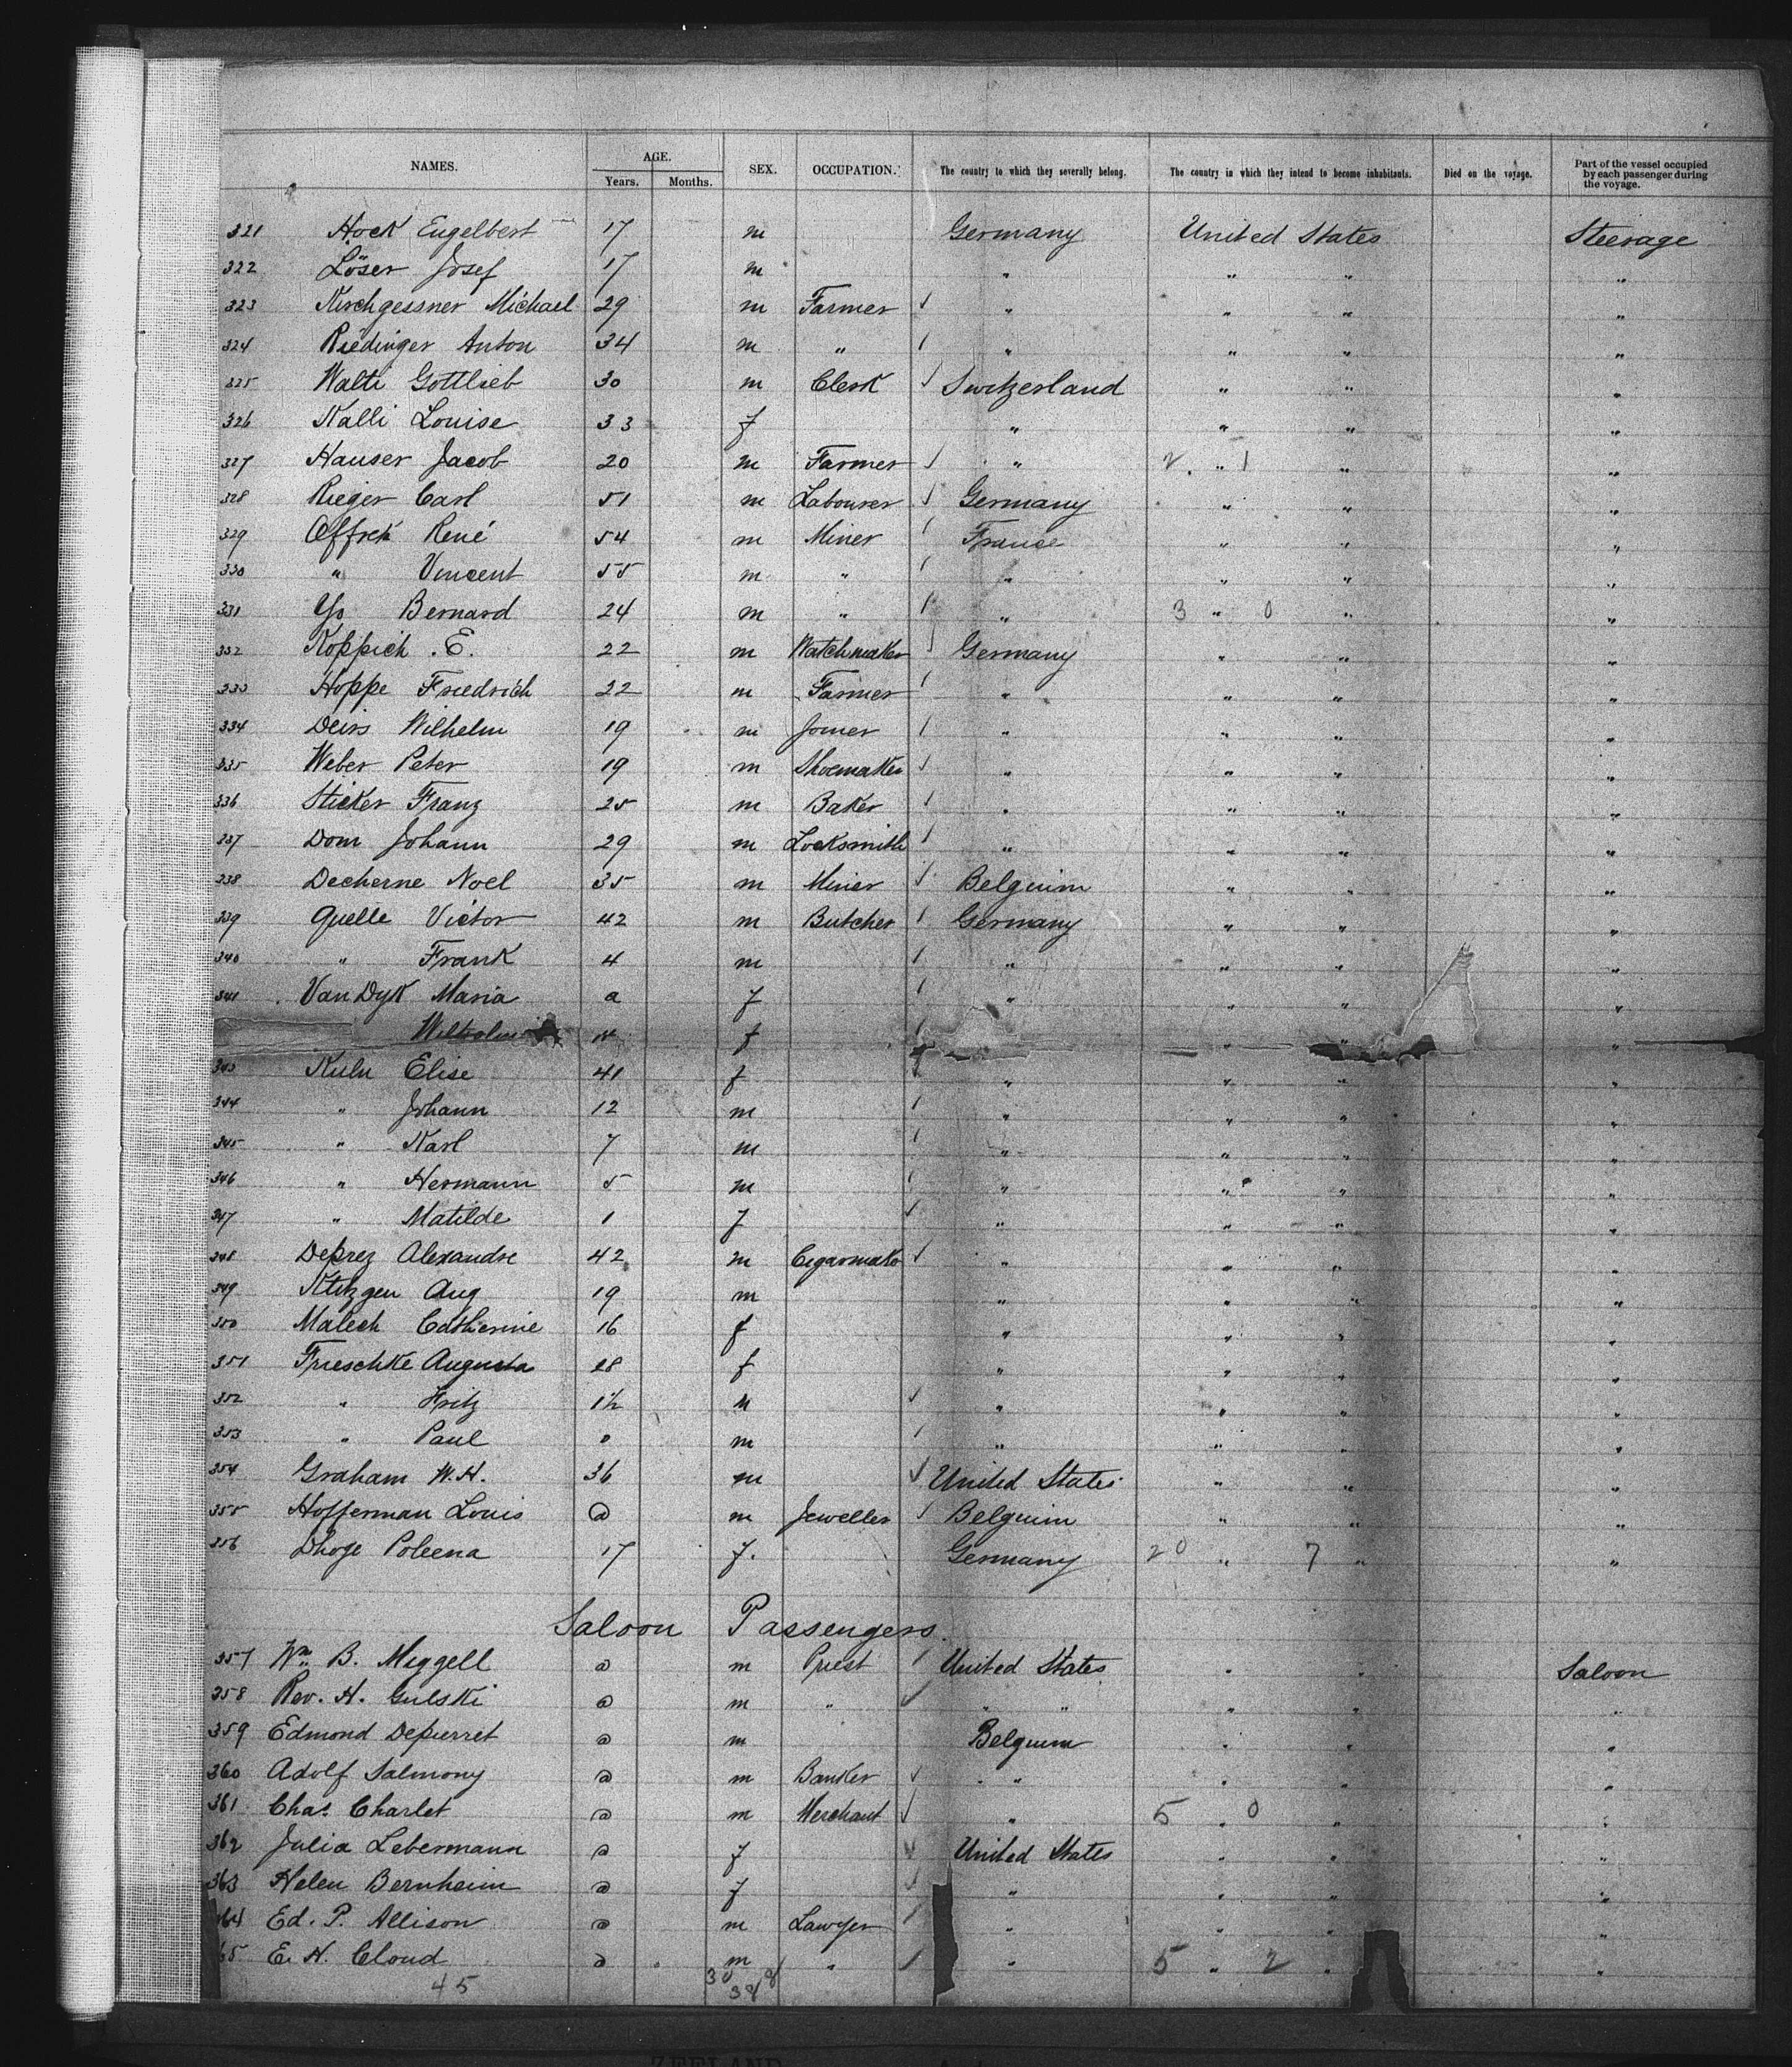 NAMES. AGE. Years. Months. SEX. OCCUPATION. The country to which they severally belong. The country in which they intend to become inhabitants. Died on the voyage. Part of the vessel occupied by each passenger during the voyage.
321 Hock Engelbert 17 m Germany United States Steerage
322 Löser Josef 17 m " " " "
323 Kirchgessner Michael 29 m Farmer " " " "
324 Riedinger Anton 34 m " " " " "
325 Walti Gottlieb 30 m Clerk Switzerland " " "
326 Kalli Louise 33 f " " " "
327 Hauser Jacob 20 m Farmer " 2 " 1 " "
328 Rieger Carl 51 m Labourer Germany " " "
329 René 54 m Miner France " " "
330 " Vincent 55 m " " " " "
331 Bernard 24 m " " 3 " 0 " "
332 Koppich . E. 22 m Watchmaker Germany " " "
333 Hoppe Friedrich 22 m Farmer " " " "
334 Deirs Wilhelm 19 m Joiner " " " "
335 Weber Peter 19 m Shoemaker " " " "
336 Sticker Franz 25 m Baker " " " "
337 Dom Johann 29 m Locksmith " " " "
338 Decherne Noel 35 m Miner Belguim " " "
339 Quelle Victor 42 m Butcher Germany " " "
340 " Frank 4 m " " " "
341 Van Dyk Maria a f " " " "
f " " "
343 Kuln Elise 41 f " " " "
344 " Johann 12 m " " " "
345 " Karl 7 m " " " "
346 " Hermann 5 m " " " "
347 " Matilde 1 f " " " "
348 Deprez Alexandre 42 m Cigarmaker " " " "
349 Klitzgen Aug 19 m " " " "
350 Malech Catherine 16 f " " " "
351 Frieschke Augusta 28 f " " " "
352 " Fritz 1½ m " " " "
353 " Paul 0 m " " " "
354 Graham W. H. 36 m United States " " "
355 Hofferman Louis @ m Jeweller Belguim " " "
356 Dhoge Poleena 17 f. Germany 20 " 7 " "
Saloon Passengers.
357 Wm B. Miggell @ m Priest United States " " Saloon
358 Rev. H. Gulski @ m " " " " " "
359 Edmond Depierret @ m Belguim " " "
360 Adolf Salmony @ m Banker " " " "
361 Chas. Charlet @ m Merchant " 5 " 0 " "
362 Julia Lebermann @ f United States " " "
363 Helen Bernheim @ f " " " "
364 Ed. P. Allison @ m Lawyer " " " "
65 E. H. Cloud @ m " " 5 " 2 " "
45 30 8
38